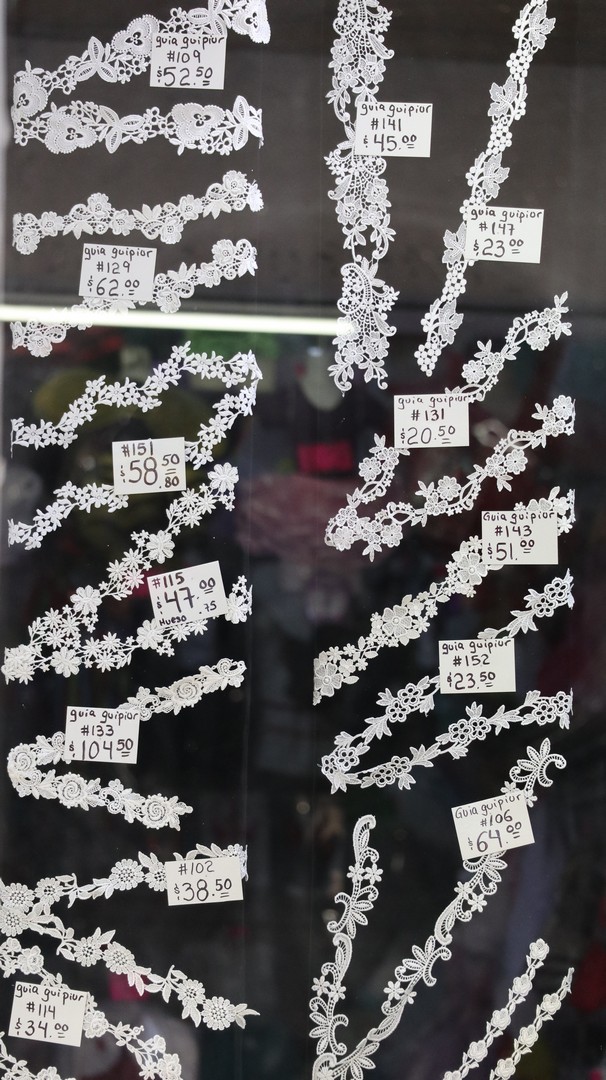 guia guipiur
#109
$52.50
guia guipiur
#129
$62.00
#151
$58.50
.80
#115
$47.00
.75
Hueso
guia guipiur
#133
$104.50
#102
$38.50
guia guipiur
#114
$34.00
guia guipiur
#141
$45.00
guia guipiur
#147
$23.00
guia guipiur
#131
$20.50
Guia guipiur
#143
$51.00
guia guipiur
#152
$23.50
Guia guipiur
#106
$64.00